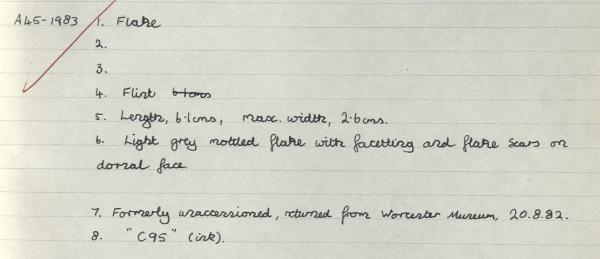 A45-1983 1. Flake
2.
3.
4. Flint 6·1cms
5. Length, 6·1cms, max. width, 2·6cms.
6. Light grey mottled flake with facetting and flake scars on
dorsal face.
7. Formerly unaccessioned, returned from Worcester Museum, 20.8.82.
8. "C95" (ink).